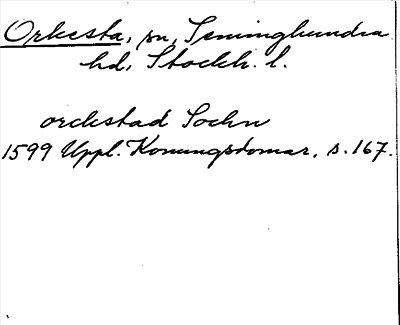 Orkesta, sn, Seminghundra
hd, Stockh. l.
orckstad Sochn
1599 Uppl. Konungsdomar, s. 167.